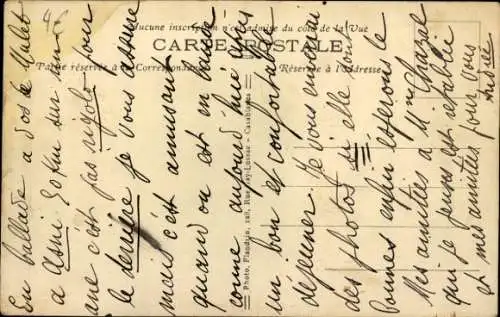 Aucune inscription n'est admise du côté de la Vue
CARTE POSTALE
Partie réservée à la Correspondance
Réserve à l'Adresse
Photo. Flandrin, Casablanca
En ballade a dos de Mulet
a Asni 50 km sur un
ane c'est pas rigolo pour
le derrière je vous assure
mais c'est amusant
quand on est en bande
comme aujourd'hui avec
un bon et confortable
déjeuner. Je vous enverrai
des photos si elle sont
bonnes enfin espérons le
Mes amitiés a Mme
qui je pense est rétablie
et mes amitiés pour vous
Andrée